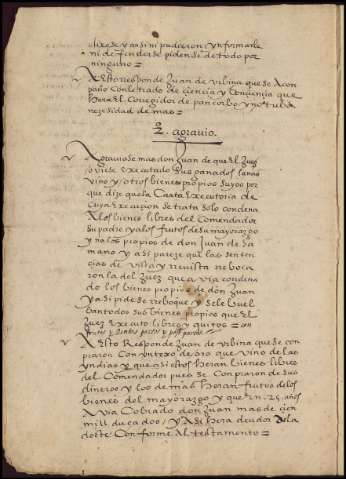 dize se y no si ni pudieron ynformarle
ni defenderse piden si de todo por
ninguno
A Esto Responde Juan de Urbina que se acon
paño con letrado de ciencia y conciencia que
hera el corregidor de pancorbo y no tubo
nezesidad de mas
2. agravio
Agraviose mas don Juan de que el Juez
oviese Executado sus ganados lanas
vino y otros bienes propios suyos por
que dize que la Carta Executoria de
cuya execucion se trata solo condena
a los bienes libres del Comendador
su padre y a los frutos de su mayorazgo
y no los propios de don Juan de Sa
mano y asi pareze que las senten
cias de vista y revista reboca
ron la del Juez que avia condena
do los bienes propios de don Juan
y asi pide se reboque y se le buel
ban todos sus bienes propios que el
Juez Executo libres y quitos
A Esto Responde Juan de Urbina que se con
praron con un trozo de oro que vino de las
yndias y que asi estos heran bienes libres
del Comendador pues se conpraron de sus
dineros y los demas heran frutos de los
bienes del mayorazgo y que en 25 años
avia cobrado don Juan mas de cien
mill ducados y asi hera deudor de la
dote conforme al testamento